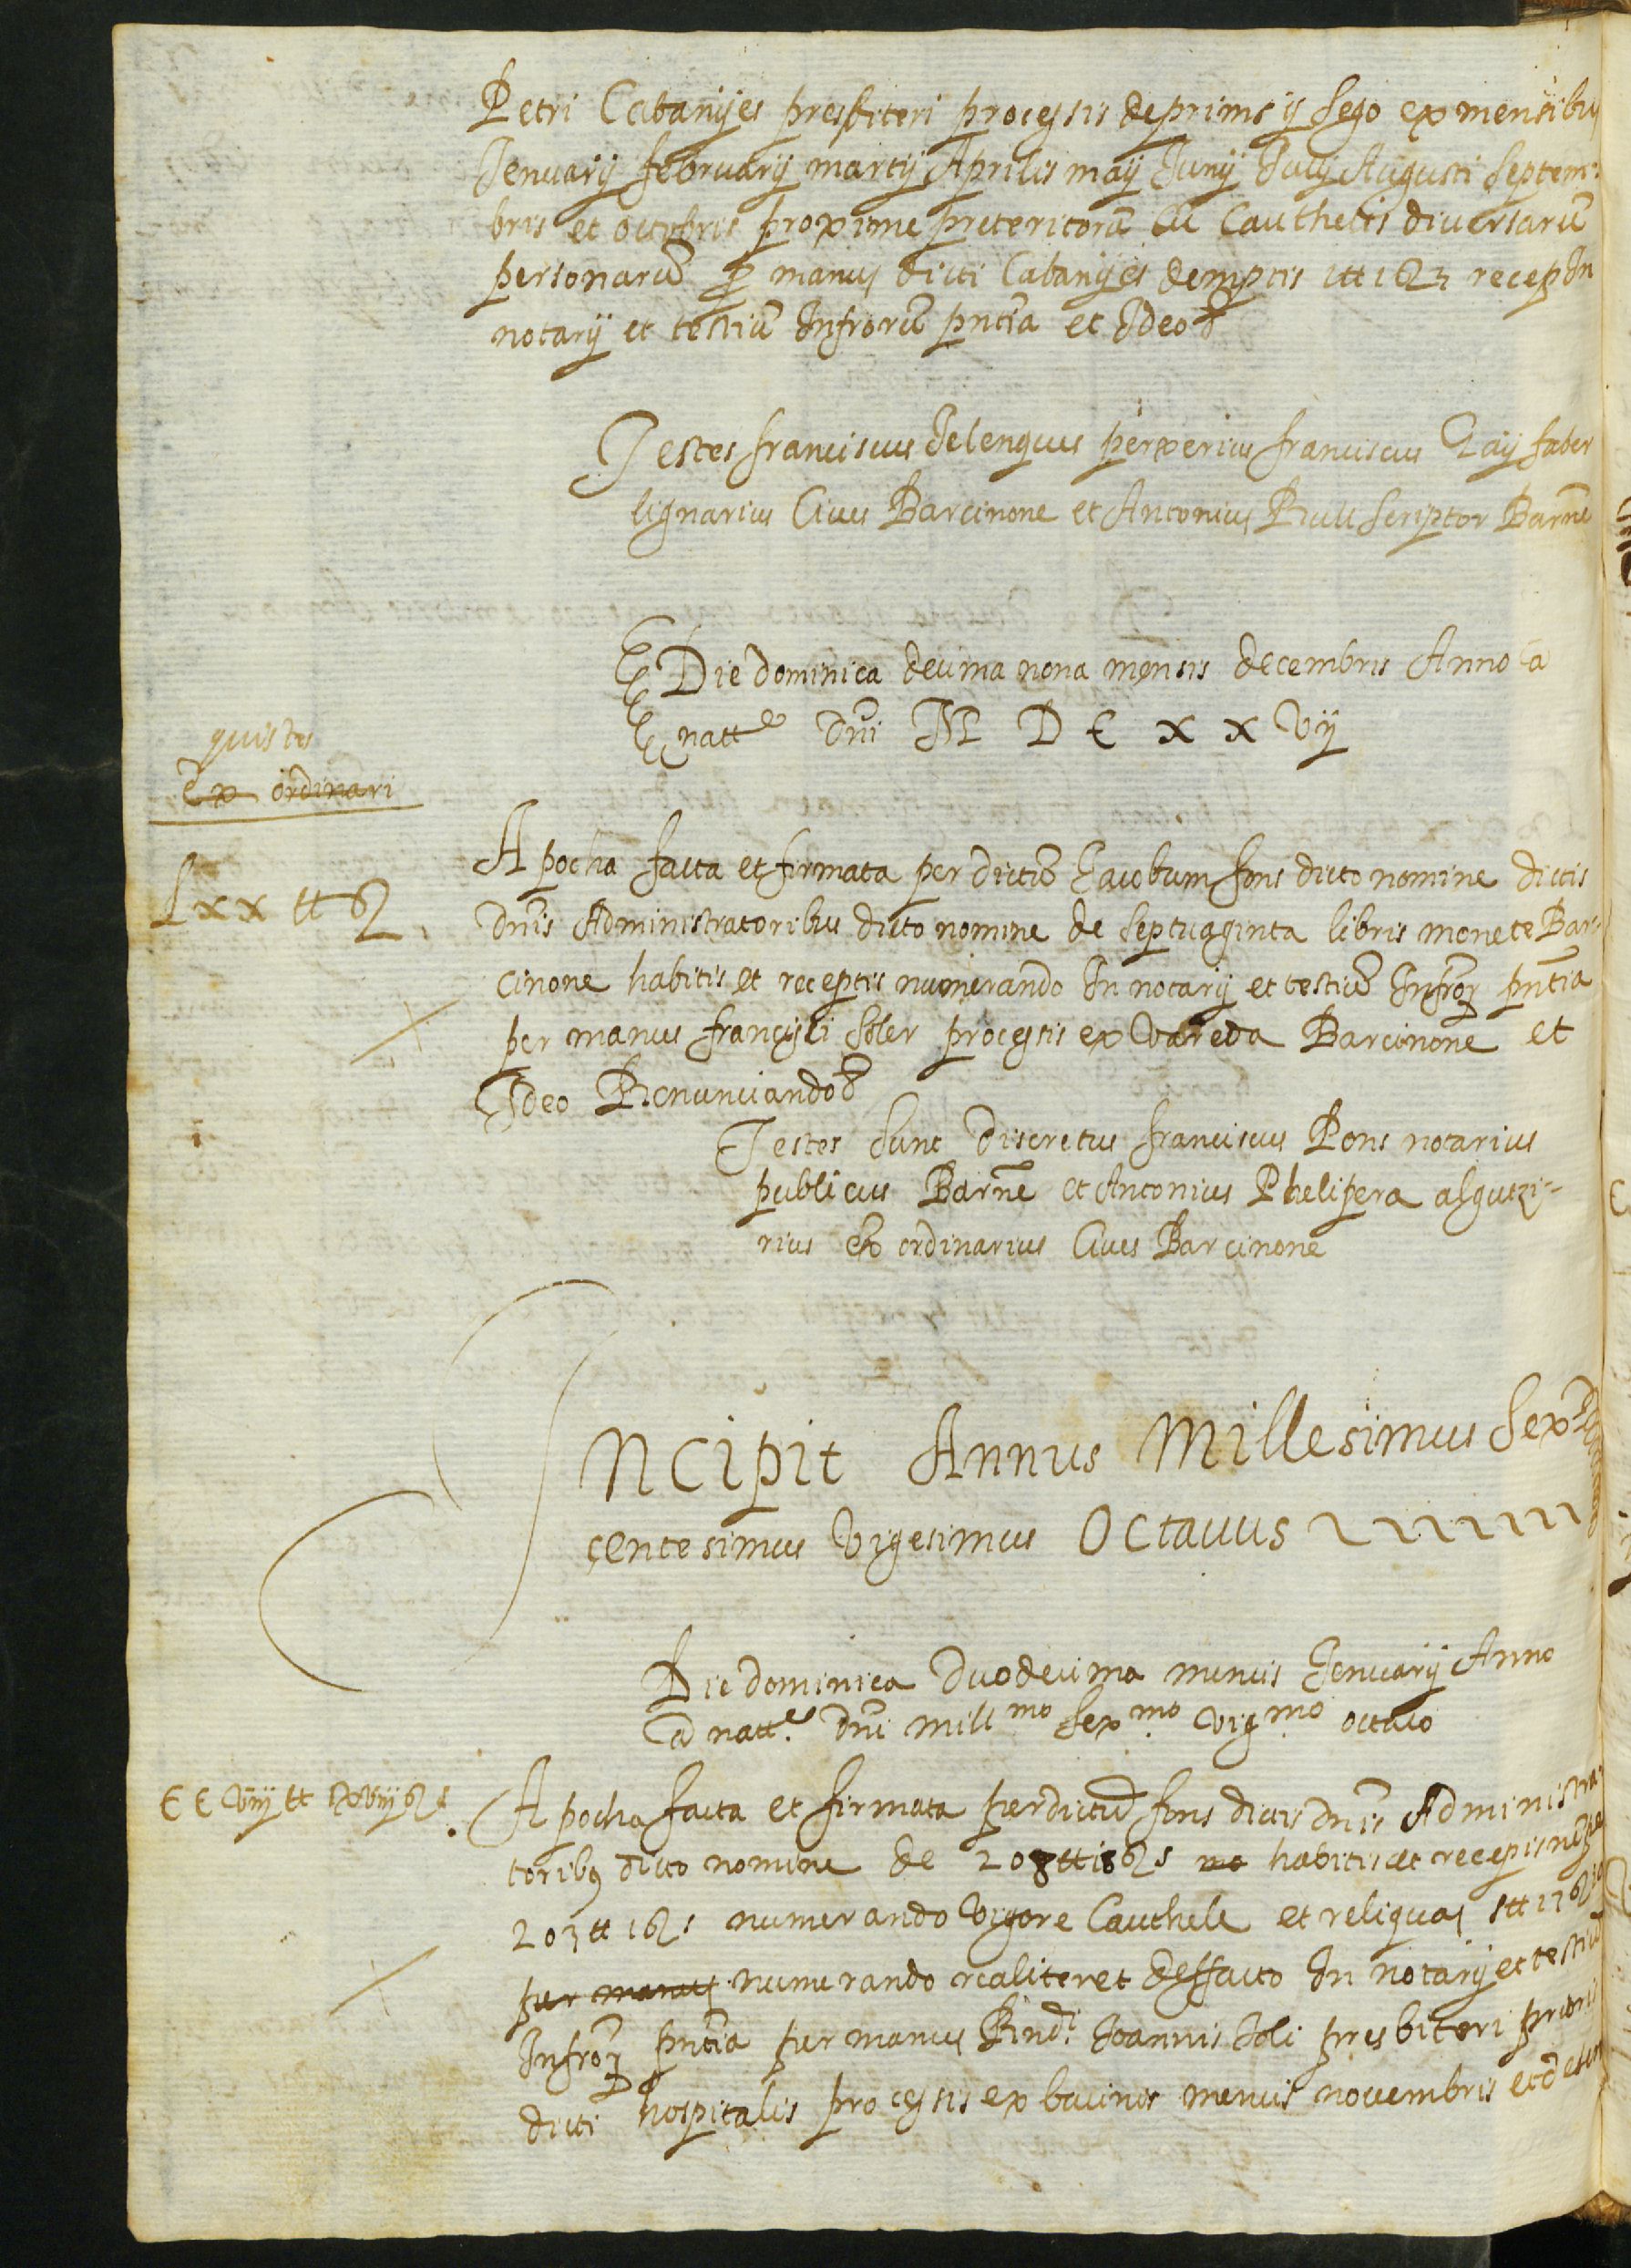 Petri Cabanyes presbiteri processis de primcijs sego ex mensibus
Jenuarij februarij martij Aprilis maij Junij Julij Augusti Septem-
bris et octobris proxime preteritorū cū Cauthelis diuersarū
personarū p manus dicti Cabanyes demptis
notarij et testiū Infrorū pntia et Ideo &
Testes franciscus Telenques perxerius franciscus Lay faber
lignarius Ciues Barcinone et Antonius Rull scriptor Barne
Die dominica decima nona mensis decembris Anno a
natte Dni M D C x x Vij
quistes
Ex ordinari
Lxx tt s
Apocha facta et firmata per dictū Jacobum fons dicto nomine dictis
dnis Administratoribus dicto nomine de septuaginta libris monete Bar-
cinone habitis et receptis numerando In notarij et testiū Infror pntia
per manus francisci Soler processis ex Vareda Barcinone et
Ideo Renunciando &
Testes sunt discretus franciscus Pons notarius
publicus Barne et Antonius Phelipera algutzi-
rius ex ordinarius Ciues Barcinone
Incipit Annus Millesimus Sex
centesimus Vigesimus Octauus
Die dominica duodecima mensis Jenuarij Anno
a natte. dni mill mo sex mo. vig mo. octauo
CC Viij tt xviij s
Apocha facta et firmata per dictū fons dictis dnis Administra-
toribs dicto nomine de 208 tt 18 s habitis et receptis
203 tt numerando Vigore Cauthele et reliquas
per manus numerando realiter et deffacto In notarij et testiū
Infror pntia per manus Rindi Joannis Soli presbiteri prioris
dicti hospitalis processis ex bacinis mensis nouembris